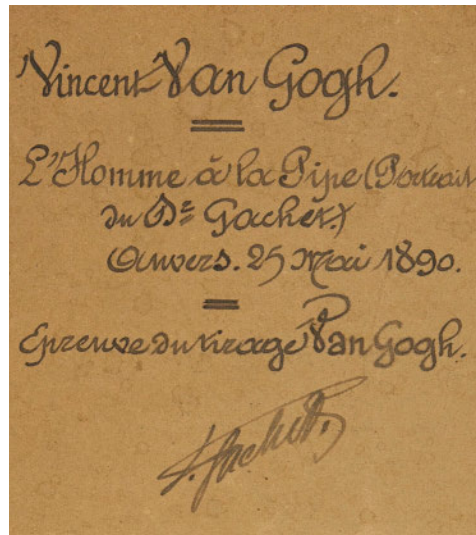 Vincent Van Gogh.
L'Homme à la Pipe (Portrait
du Dr Gachet.)
Auvers. 25 Mai 1890.
Epreuve du tirage Van Gogh.
P. Gachet.